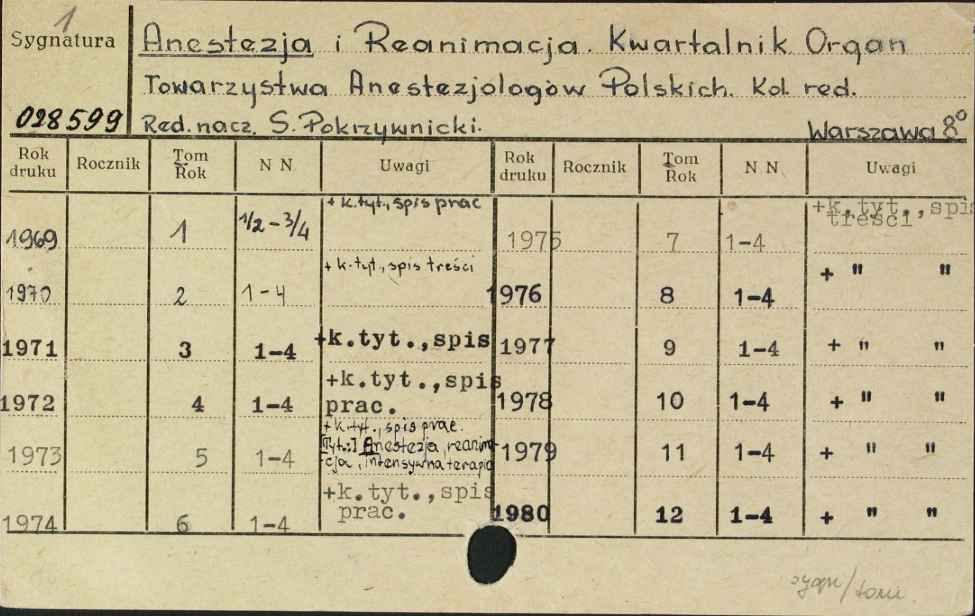 1
Sygnatura
028599
Anestezja i Reanimacja. Kwartalnik Organ
Towarzystwa Anestezjologów Polskich. Kol. red.
Red. nacz. S. Pokrzywnicki.
Warszawa 8°
Rok druku Rocznik Tom Rok N N Uwagi Rok druku Rocznik Tom Rok N N Uwagi
1969 1 1/2-3/4 + k.tyt., spis prac
1970 2 1-4 + k.tyt., spis treści
1971 3 1-4 +k.tyt.,spis
1972 4 1-4 +k.tyt.,spis
prac.
1973 5 1-4 +k.tyt., spis prac.
[Tyt.:] Anestezja, reanima-
cja, intensywna terapia
1974 6 1-4 +k.tyt.,spis
prac.
1975 7 1-4 +k.tyt.,spis
treści
1976 8 1-4 + " "
1977 9 1-4 + " "
1978 10 1-4 + " "
1979 11 1-4 + " "
1980 12 1-4 + " "